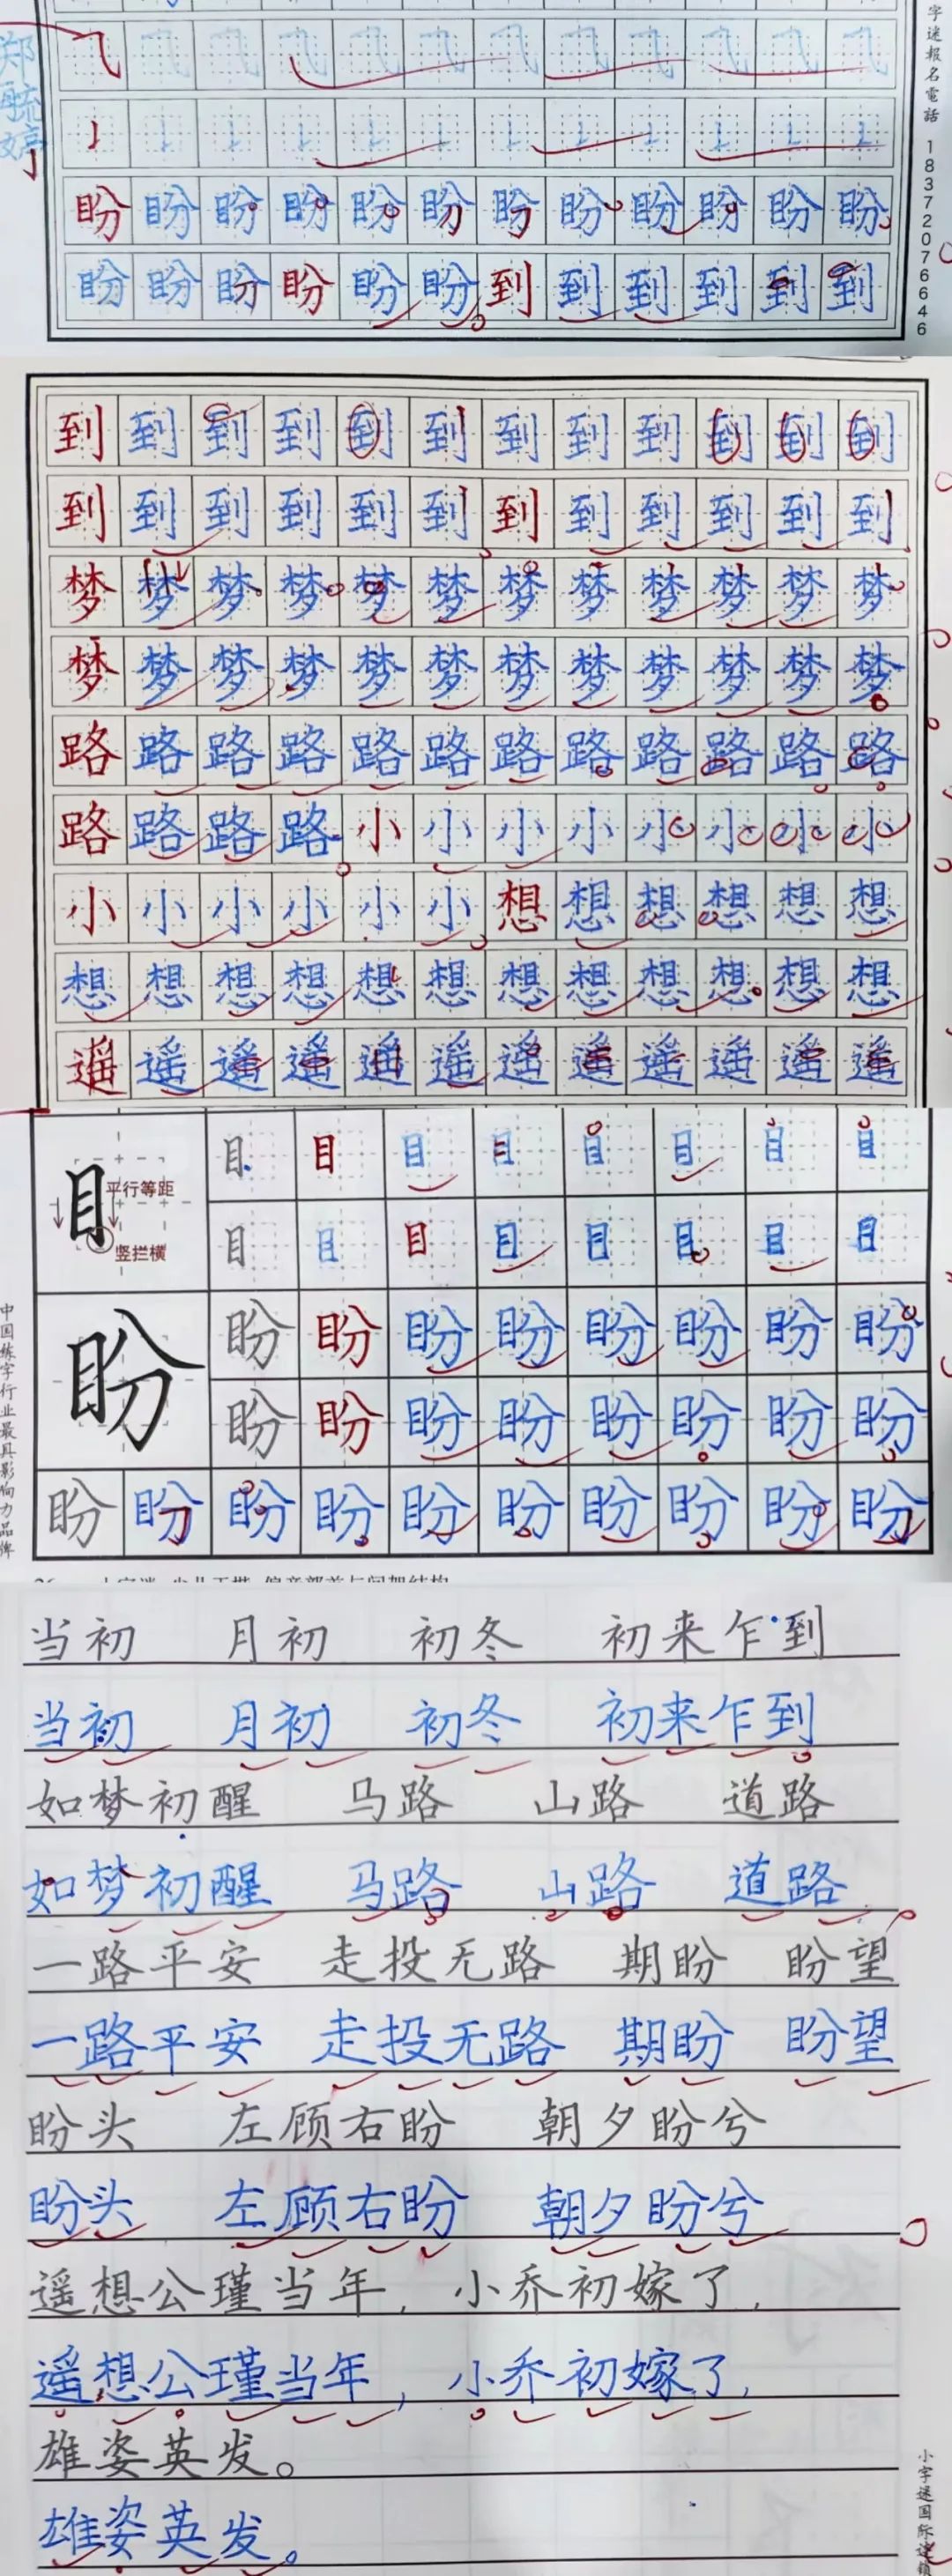 字迷報名電話 18372076646
盼盼盼盼盼盼盼盼盼盼盼盼
盼盼盼盼盼盼到到到到到到
到到到到到到到到到到到到
到到到到到到到到到到到到
梦梦梦梦梦梦梦梦梦梦梦梦
梦梦梦梦梦梦梦梦梦梦梦梦
路路路路路路路路路路路路
路路路路小小小小小小小小
小小小小小小想想想想想想
想想想想想想想想想想想想
遥遥遥遥遥遥遥遥遥遥遥遥
目 平行等距 竖拦横
目目目目目目目目
目目目目目目目目
盼
盼盼盼盼盼盼盼盼
盼盼盼盼盼盼盼盼
盼盼盼盼盼盼盼盼盼盼
中国练字行业最具影响力品牌
当初 月初 初冬 初来乍到
当初 月初 初冬 初来乍到
如梦初醒 马路 山路 道路
如梦初醒 马路 山路 道路
一路平安 走投无路 期盼 盼望
一路平安 走投无路 期盼 盼望
盼头 左顾右盼 朝夕盼兮
盼头 左顾右盼 朝夕盼兮
遥想公瑾当年，小乔初嫁了，
遥想公瑾当年，小乔初嫁了，
雄姿英发。
雄姿英发。
小字迷国际